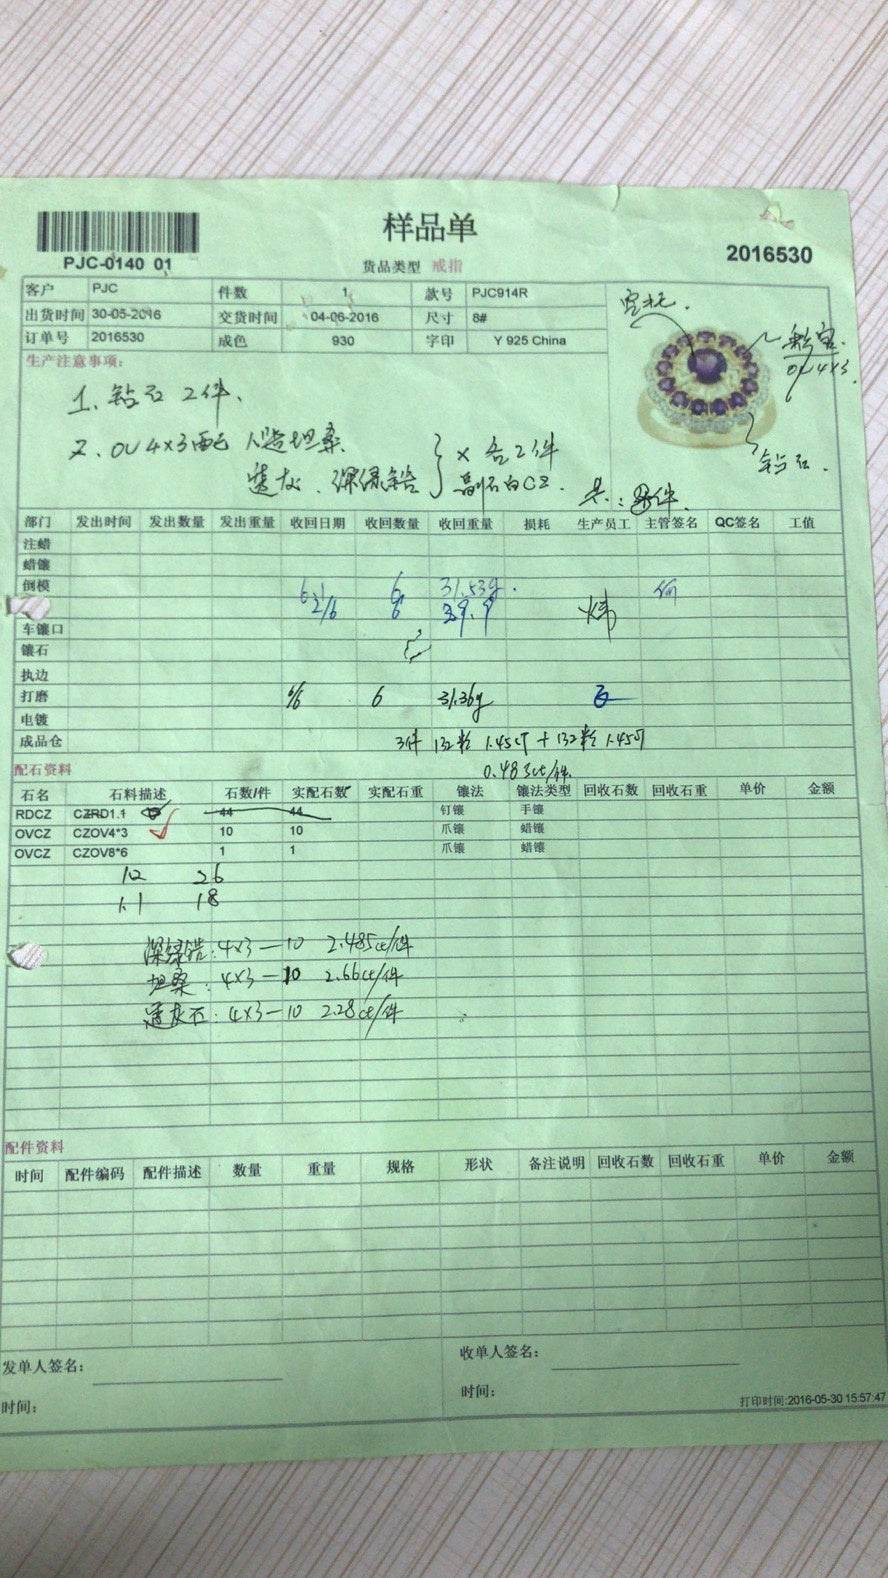 样品单
PJC-0140 01
货品类型 戒指
2016530
客户 PJC 件数 1 款号 PJC914R
出货时间 30-05-2016 交货时间 04-06-2016 尺寸 8#
订单号 2016530 成色 930 字印 Y 925 China
空托.
彩宝.
OV4X3.
钻石.
生产注意事项:
1、钻石 2件、
2、OV4×3配 人造坦桑
透灰、深绿锆 } × 各2件
副石白CZ. 共: 件.
部门 发出时间 发出数量 发出重量 收回日期 收回数量 收回重量 损耗 生产员工 主管签名 QC签名 工值
注蜡
蜡镶
倒模 6 31.53g.
2/6 6
车镶口
镶石
执边
打磨 6/6 6 31.36g
电镀
成品仓 3件 132粒 1.45CT + 132粒 1.45CT
0.483ct/件.
配石资料
石名 石料描述 石数/件 实配石数 实配石重 镶法 镶法类型 回收石数 回收石重 单价 金额
RDCZ CZRD1.1 44 44 钉镶 手镶
OVCZ CZOV4*3 10 10 爪镶 蜡镶
OVCZ CZOV8*6 1 1 爪镶 蜡镶
1.2 26
1.1 18
深绿锆: 4×3—10 2.485ct/件
坦桑: 4×3—10 2.66ct/件
透灰石: 4×3—10 2.28ct/件
配件资料
时间 配件编码 配件描述 数量 重量 规格 形状 备注说明 回收石数 回收石重 单价 金额
发单人签名: 收单人签名:
时间: 时间:
打印时间:2016-05-30 15:57:47